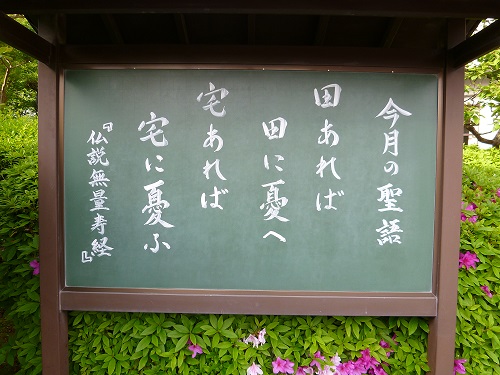 今月の聖語
田あれば
田に憂へ
宅あれば
宅に憂ふ
『仏説無量寿経』